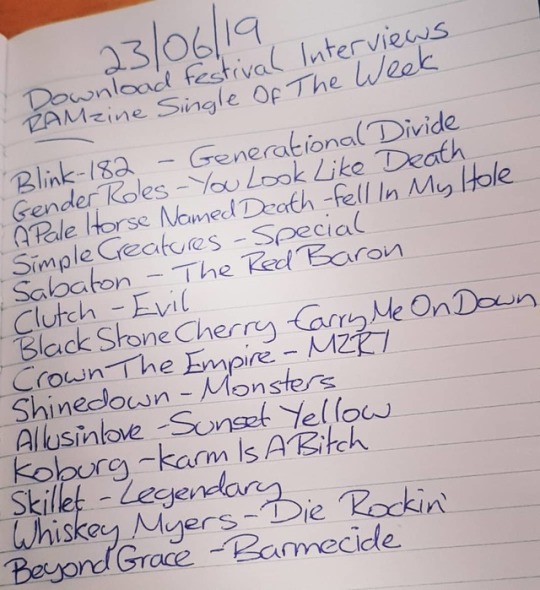 23/06/19
Download Festival Interviews
RAMzine Single Of The Week
Blink-182 - Generational Divide
Gender Roles - You Look Like Death
A Pale Horse Named Death - Fell In My Hole
Simple Creatures - Special
Sabaton - The Red Baron
Clutch - Evil
Black Stone Cherry - Carry Me On Down
Crown The Empire - MZRY
Shinedown - Monsters
Allusinlove - Sunset Yellow
Koburg - Karm Is A Bitch
Skillet - Legendary
Whiskey Myers - Die Rockin'
Beyond Grace - Barmecide